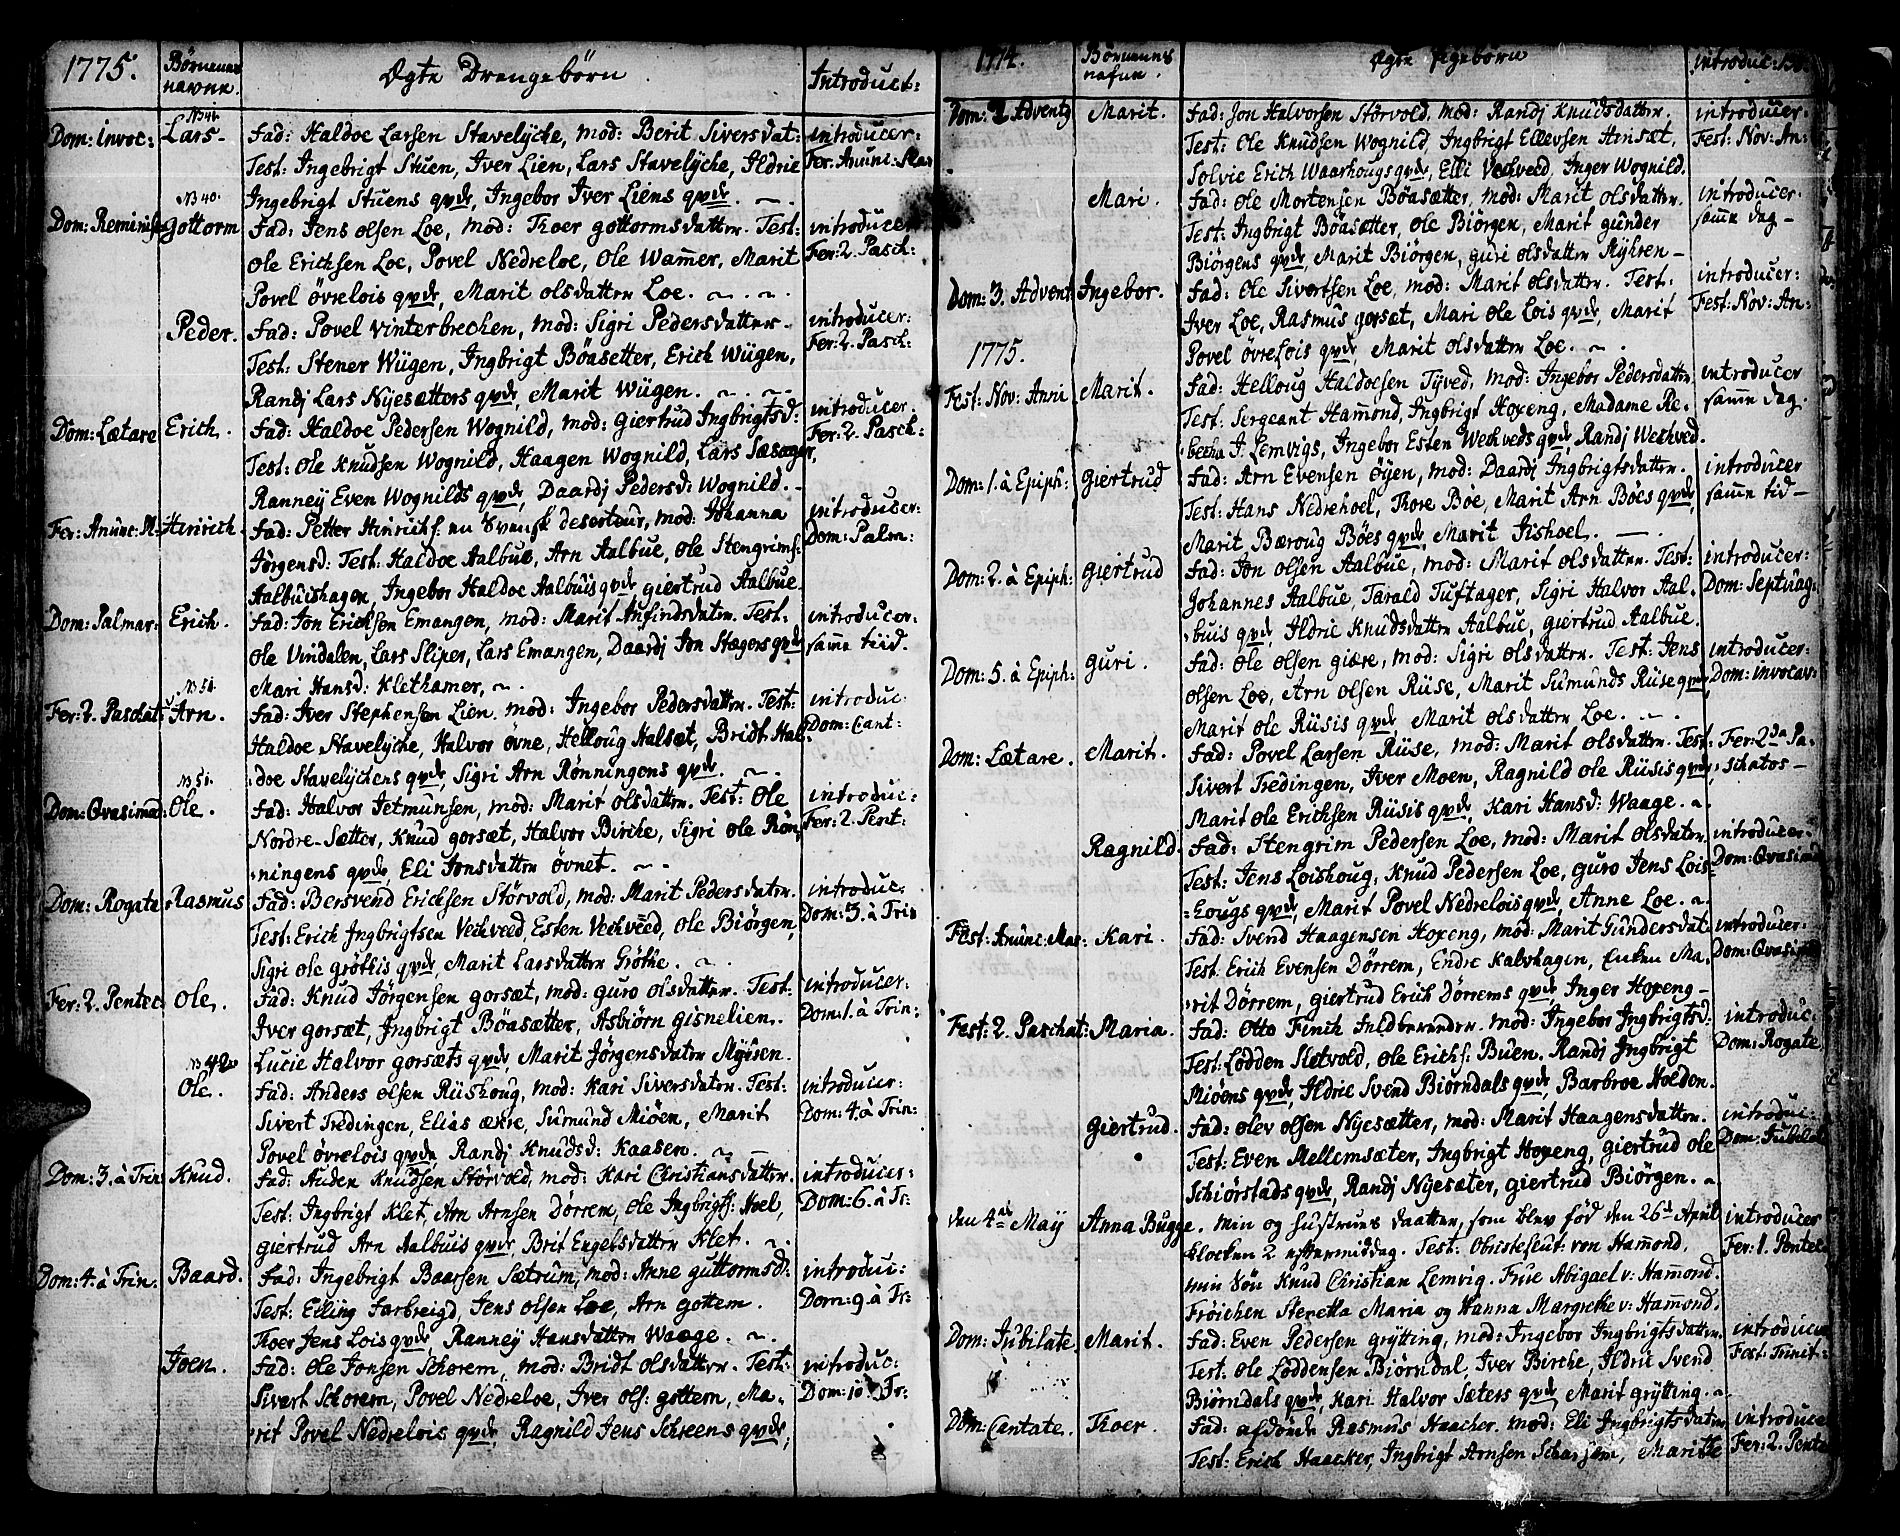 1775.
Børnenes navne.
Ægte Drengebörn.
Introduct:
Dom: invoc:
N 41.
Lars-
Fad: Haldoe Larsen Stavelyche, mod: Berit Siversdat:
Test: Ingebrigt Stuen, Iver Lien, Lars Stavelyche, Ildrie
Ingebrigt Stuens qvde, Ingebor Iver Liens qvde.
introducer:
Fer: Anunc: Mar
Dom: Reminisc
N 40.
Gottorm
Fad: Jens olsen Loe, mod: Thoer gottormsdatter. Test:
Ole Erichsen Loe, Povel Nedreloe, Ole Wammer, Marit
Povel övrelois qvde, Marit olsdatter Loe.
introducer
Fer: 2. Pasch:
Peder.
Fad: Povel Vinterbrechen, mod: Sigri Pedersdatter.
Test: Stener Wügen, Ingbrigt Böasetter, Erich Wügen,
Randj Lars Nyesætters qvde, Marit Wügen.
introducer:
Fer: 2. Pasch:
Dom: Lætare
Erich.
Fad: Haldoe Pedersen Wognild, mod: Giertrud Ingbrigtsd:
Test: Ole Knudsen Wognild, Haagen Wognild, Lars Sæsager,
Ranney Even Wognilds qvde, Daardj Pedersd: Wognild.
introducer.
Fer: 2. Pasch:
Fer: Anunc: M.
Hinrich.
Fad: Petter Hinrichs. en Svensk deserteur, mod: Johanna
Jørgensd: Test: Haldoe Aalbue, Arn Aalbue, Ole Stengrims:
Aalbuishagen, Ingebor Haldoe Aalbuis qvde, giertrud Aalbue.
introducer:
Dom: Palm:
Dom: Palmar:
Erich.
Fad: Jon Ericksen Emangen, mod: Marit Anfindsdatter. Test:
Ole Vindalen, Lars Sliper, Lars Emangen, Daardj Jon Hægers qvde
Mari Hansd: Klethamer,
introducer:
samme tiid.
Fer: 2. Paschat:
N 51.
Arn.
Fad: Iver Stephensen Lien, mod: Ingebor Pedersdatter. Test:
Haldoe Stavelyche, Halvor övne, Helloug Halsæt, Bridt Hal:
doe Stavelychens qvde, Sigri Arn Rønningens qvde.
introduc:
Dom: Cant:
Dom: Qvasimod:
N 51.
Ole.
Fad: Halvor Jetmundsen, mod: Marit olsdatter. Test: Ole
Nordre-Sætter, Knud gorsæt, Halvor Birche, Sigri Ole Røn,
ningens qvde, Eli Jonsdatter övnet.
introduc:
Fer: 2. Pent:
Dom: Rogate
Rasmus
Fad: Bersvend Ericksen Störvold, mod: Marit Pedersdater.
Test: Erich Jngbrigtsen Vechveed, Esten Vechveed, Ole Biörgen,
Sigri ole gröttis qvde, Marit Larsdatter Gröthe.
introduc:
Dom: 3. à Trin
Fer: 2. Pentec:
Ole.
Fad: Knud Jörgensen gorsæt, mod: guro olsdatter. Test:
Iver gorsæt, Jngbrigt Böasætter, Asbiörn gisnelien.
Lucie Halvor gorsæts qvde, Marit Jörgensdater Myhren.
introducer:
Dom: 1. à Trin:
N 42
Ole.
Fad: Anders olsen Riishoug, mod: Kari Siversdatter. Test:
Sivert Tredingen, Elias ækre, Sumund Miöen, Marit
Povel övrelois qvde, Randj Knudsd: Kaasen.
introducer:
Dom: 4. à Trin:
Dom: 3. à Trin:
Knud.
Fad: Auden Knudsen Störvold, mod: Kari Christiansdatter.
Test: Ingbrigt Klet, Arn Arnsen Dörrem, Ole Ingbrigts: Hoel,
giertrud Arn Aalbuis qvde, Brit Engebsdatter Klet.
introducer:
Dom: 6. à Tr:
Dom: 4. à Trin.
Baard.
Fad: Ingebrigt Baarsen Sætrum, mod: Anne guttormsd:
Test: Elling Farbreigd, Jens olsen Loe, Arn gottem.
Thoer Jens Lois qvde, Ranney Hansdatter Waage.
introduc:
Dom: 9. à Tr:
Joen.
Fad: Ole Jonsen Schorem, mod: Bridt olsdatter. Test:
Sivert Schorem, Povel Nedreloe, Iver ols: gottem, Ma-
rit Povel Nedrelois qvde, Ragnild Jens Schreens qvde,
introduc:
Dom: 10 à Tr:
1774.
Børnenes nafne.
Ægte Pigebörn
introduc:
Dom: 2 Advent:
Marit.
Fad: Jon Halvorsen Störvold, mod: Randj Knudsdatter.
Test: Ole Knudsen Wognild, Ingbrigt Ellevsen Hinsæt,
Solvie Erich Waarhougs qvde, Elli Vechveed, Inger Wognild.
introducer.
Fest: Nov: An:
Mari.
Fad: Ole Mortensen Böasætter, mod: Marit olsdatter.
Test: Ingbrigt Böasætter, Ole Biörgen, Marit günder
Biörgens qvde, Marit Biörgen, guri olsdatter Myhren-
introducer.
samme dag-
Dom: 3. Advent
Ingebor.
Fad: Ole Sivertsen Loe, mod: Marit olsdatter. Test:
Iver Loe, Rasmus gorsæt, Mari Ole Lois qvde, Marit
Povel övrelois qvde, Marit olsdatter Loe.
introducer:
Fest: Nov: An:
1775.
Fest: Nov: Anni
Marit.
Fad: Helloug Haldoesen Tyved, mod: Ingebor Pedersdatter.
Test: Sergeant Hammond, Ingbrigt Hoxeng, Madame Re-
becha J. Lemvigs, Ingebor Esten Wechveds qvde, Randj Wechved.
introducer
samme dag.
Dom: 1. à Epiph:
Giertrud
Fad: Arn Evensen öyen, mod: Daardj Ingbrigtsdatter.
Test: Hans Nedrehoel, Thore Böe, Marit Arn Böes qvde,
Marit Bæroug Böes qvde, Marit Fishoel.
introducer
samme tid-
Dom: 2. à Epiph:
Giertrud
Fad: Jon olsen Aalbue, mod: Marit olsdatter. Test:
Johannes Aalbue, Tarald Tuftager, Sigri Halvor Aal-
buis qvde, Ildrie Knudsdatter Aalbue, giertrud Aalbue.
introducer:
Dom: Septuag:
Dom: 5. à Epiph:
guri.
Fad: Ole olsen giære, mod: Sigri olsdatter. Test: Jens
olsen Loe, Arn olsen Riise, Marit Sumunds Riise qvde,
Marit Ole Riisis qvde, Marit olsdatter Loe.
introducer:
Dom: invocav:
Dom: Lætare.
Marit.
Fad: Povel Larsen Riise, mod: Marit olsdatter. Test:
Sivert Tredingen, Iver Moen, Ragnild Ole Riisis qvde,
Marit Ole Erichsen Riisis qvde, Kari Hansd: Waage.
Fer: 2da Pa-
schatos-
Ragnild.
Fad: Stengrim Pedersen Loe, mod: Marit olsdater
Test: Jens Loishoug, Knud Pedersen Loe, guro Jens Lois-
hougs qvde, Marit Povel Nedrelois qvde, Anne Loe.
introducer:
Dom: Qvasimod
Fest: Anunc Mar:
Kari.
Fad: Svend Haagensen Hoxeng, mod: Marit Gundersdat.
Test: Erich Evensen Dörrem, Endre Kalvhagen, Enken Ma-
rit Dörrem, giertrud Erich Dörrems qvde, Inger Hoxeng-
introducer.
Dom: Qvasimod
Fest: 2. Paschat:
Maria.
Fad: Otto Finth Feldberender. mod: Ingebor Ingbrigtsd.
Test: Lodden Sletvold, Ole Erichs: Buen, Randj Jngbrigt
Miöens qvde, Ildrie Svend Biörndals qvde, Barbroe Holden.
introduc:
Dom: Rogate
Giertrud.
Fad: Olev olsen Nyesætter, mod: Marit Haagensdatter.
Test: Even Mellemsæter, Ingbrigt Hoxeng, Giertrud Ole
Schiörstads qvde, Randj Nyesæter, Giertrud Biörgen.
introduc:
Dom: Jubilat
den 4de May
Anna Bugge.
Min og Hustrues daatter, som blev föd den 26de April
klocken 2 eftermiddag. Test: Obristleut: von Hammond,
min Sön Knud Christian Lemvig. Frue Abigael v: Hammond.
Fröichen Steretta Maria og Hanna Margrethe v: Hammond.
introducer
Fer: 1. Pentec
Dom: Jubilate
Marit.
Fad: Even Pedersen grytting, mod: Ingebor Ingbrigtsdatter.
Test: Ole Loddensen Biörndal, Iver Birche, Ildrie Svend
Biörndals qvde, Kari Halvor Sæters qvde, Marit grytting.
introducer
Fest: Trinit:
Dom: Cantate.
Thoer.
Fad: afdöde Rasmus Haacker. mod: Eli Ingbrigtsdatter
Test: Erich Haacker, Ingbrigt Arnsen Maritte
introduce
Fer: 2. Pente